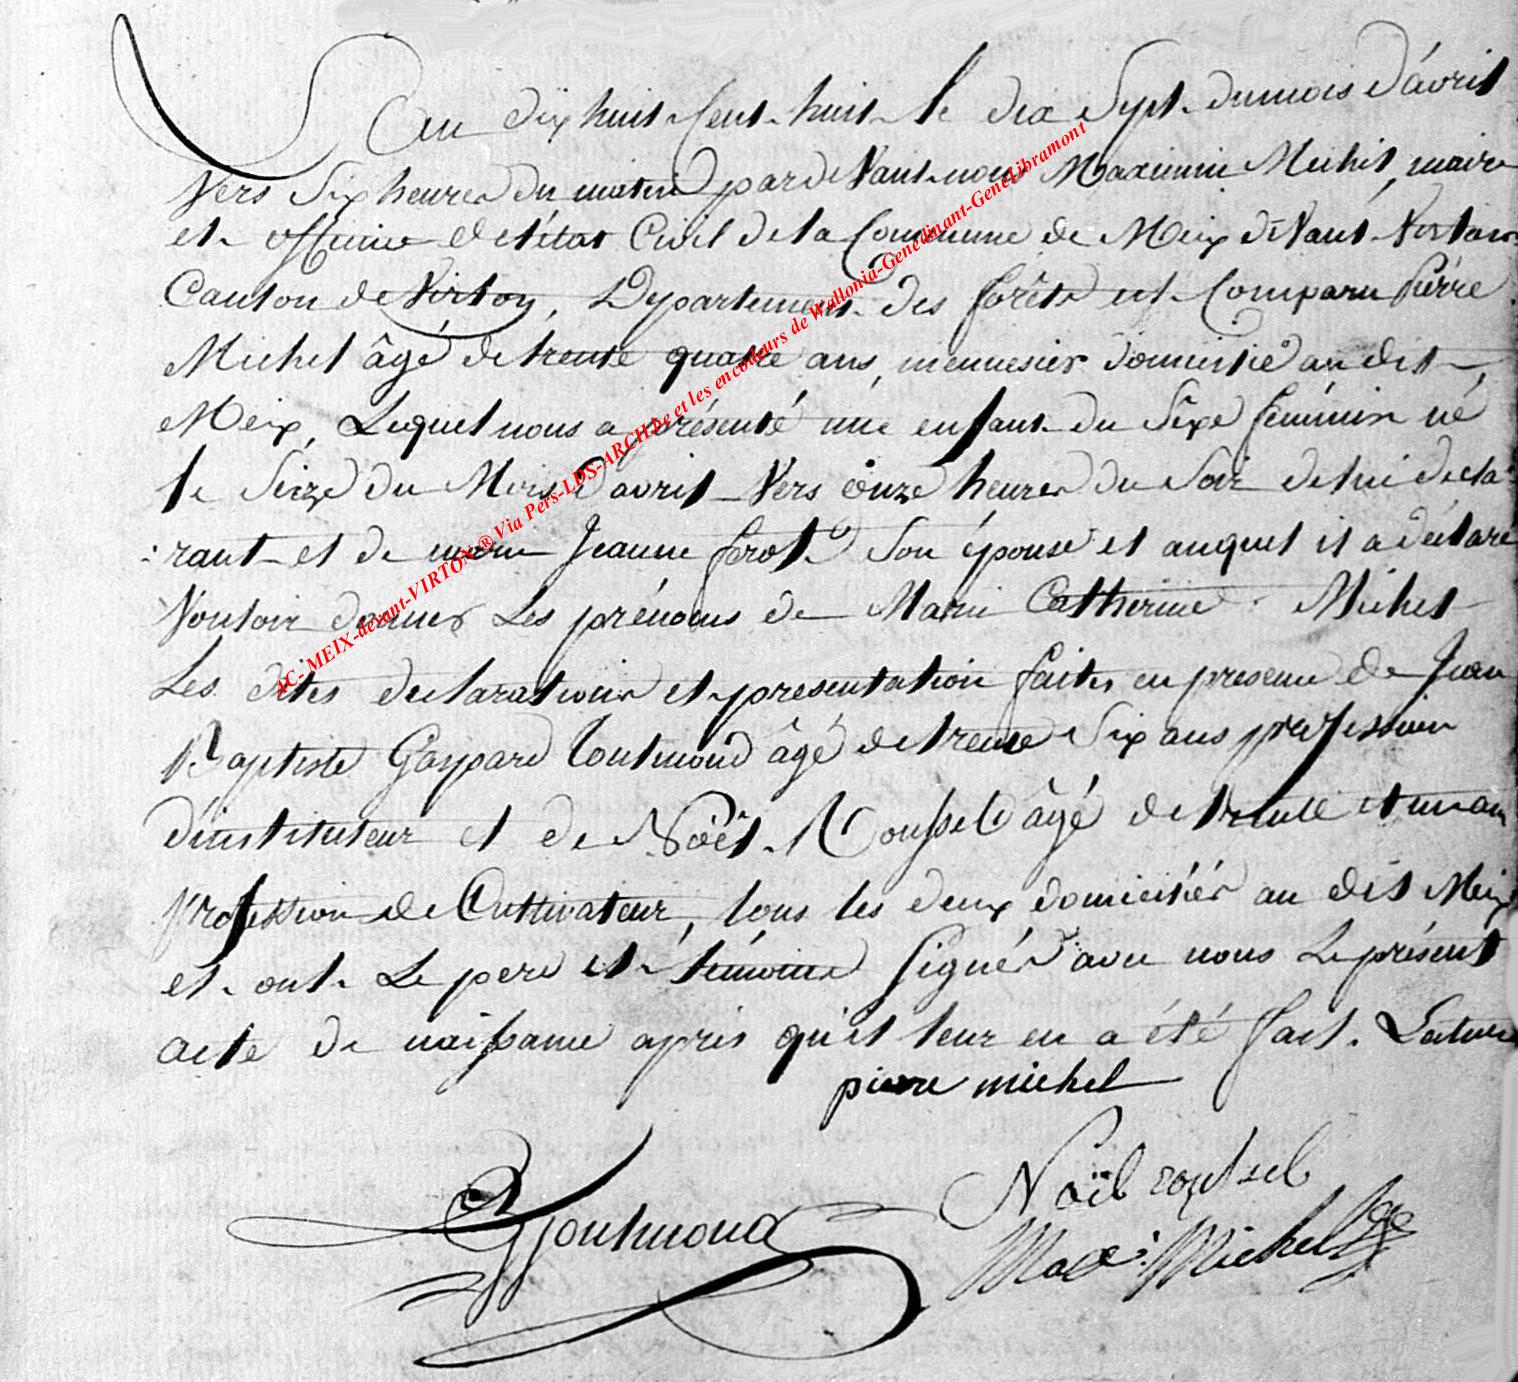 L'an dix huit Cent huit le dix Sept du mois d'avril
Vers Six heures du matin pardeVant nous Maximin Michel, maire
et officier de l'état Civil de la Commune de Meix deVant Virton
Canton de Virton, Département des forêts est Comparu Pierre
Michel âgé de trente quatre ans, menuisier domicilié au dit
Meix, Lequel nous a présenté une enfant du Séxe féminin né
le Seize du Mois d'avril Vers onze heures du Soir de lui décla
rant et de Jeanne Son épouse et auquel il a déclaré
Vouloir donner Les prénoms de Marie Catherine Michel
Les dites declarations et presentation faites en presence de Jean
Baptiste Gaspard âgé de trente Six ans profession
d'instituteur et de Noël Roussel âgé de trente et un an
Profession de Cultivateur, tous les deux domiciliés au dit Meix
et ont Le pere et témoins Signés avec nous Le présent
acte de naissance après qu'il leur en a été fait Lecture
pierre michel
Noël roussel
Max: Michel
AC- MEIX-devant-VIRTON ® Via Pers-LDS-ARCH.be et les encodeurs de Wallonia-Genedinant-GeneLibramont